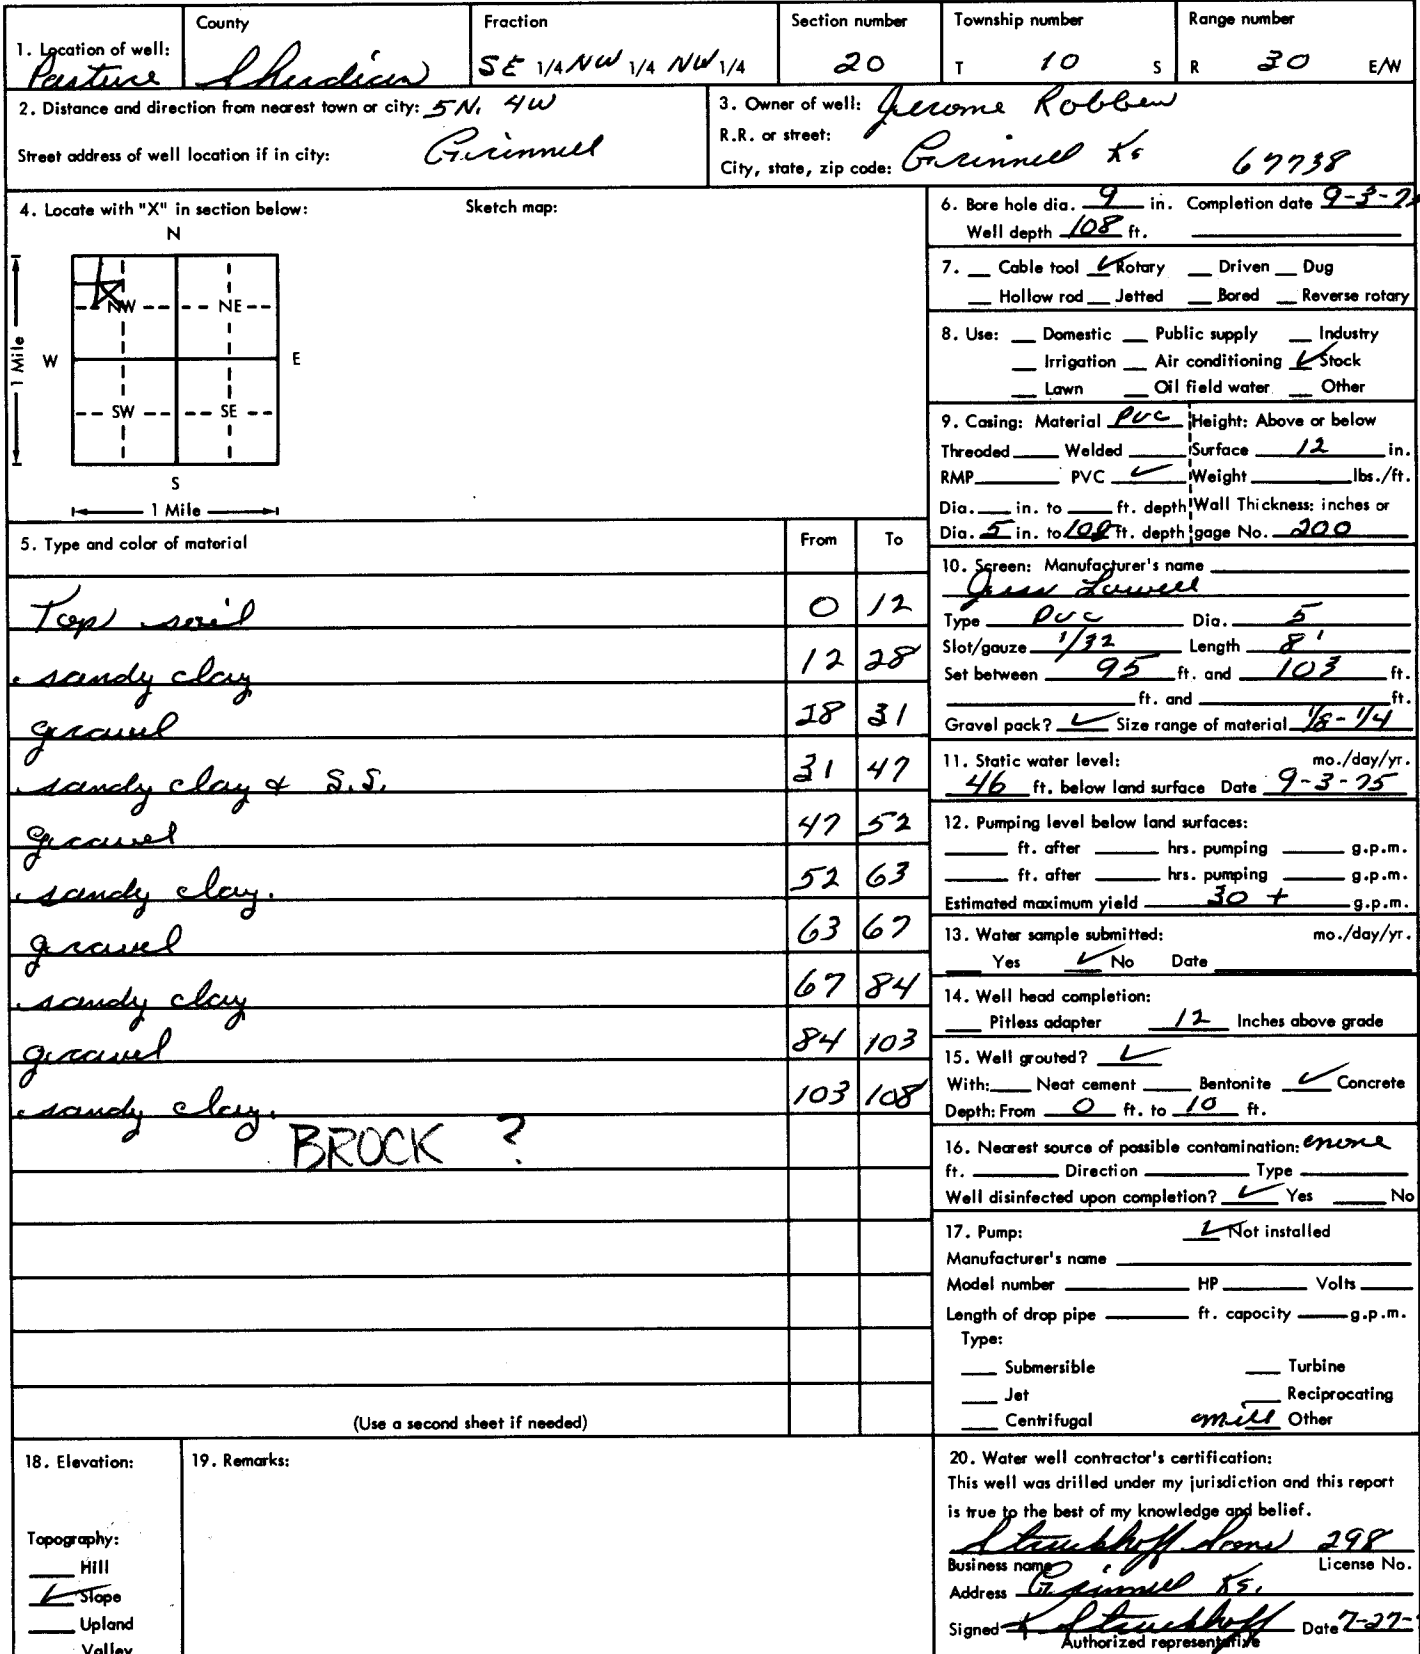 1. Location of well: Pasture
County Sheridan
Fraction SE 1/4 NW 1/4 NW 1/4
Section number 20
Township number T 10 S
Range number R 30 E/W
2. Distance and direction from nearest town or city: 5 N. 4 W
Street address of well location if in city: Grinnell
3. Owner of well: Jerome Robben
R.R. or street:
City, state, zip code: Grinnell Ks 67738
4. Locate with "X" in section below:
Sketch map:
N
NW NE
W E
SW SE
S
1 Mile
1 Mile
5. Type and color of material From To
Top soil 0 12
sandy clay 12 28
gravel 28 31
sandy clay & S.S. 31 47
gravel 47 52
sandy clay. 52 63
gravel 63 67
sandy clay 67 84
gravel 84 103
sandy clay. 103 108
BROCK ?
(Use a second sheet if needed)
6. Bore hole dia. 9 in. Completion date 9-3-7
Well depth 108 ft.
7. Cable tool ✓ Rotary Driven Dug
Hollow rod Jetted Bored Reverse rotary
8. Use: Domestic Public supply Industry
Irrigation Air conditioning ✓ Stock
Lawn Oil field water Other
9. Casing: Material PVC Height: Above or below
Threaded Welded Surface 12 in.
RMP PVC ✓ Weight lbs./ft.
Dia. in. to ft. depth Wall Thickness: inches or
Dia. 5 in. to ft. depth gage No. 200
10. Screen: Manufacturer's name
Jess Lowell
Type PVC Dia. 5
Slot/gauze 1/32 Length 8'
Set between 95 ft. and 103 ft.
ft. and ft.
Gravel pack? ✓ Size range of material 1/8-1/4
11. Static water level: mo./day/yr.
46 ft. below land surface Date 9-3-75
12. Pumping level below land surfaces:
ft. after hrs. pumping g.p.m.
ft. after hrs. pumping g.p.m.
Estimated maximum yield 30 + g.p.m.
13. Water sample submitted: mo./day/yr.
Yes ✓ No Date
14. Well head completion:
Pitless adapter 12 Inches above grade
15. Well grouted? ✓
With: Neat cement Bentonite ✓ Concrete
Depth: From 0 ft. to 10 ft.
16. Nearest source of possible contamination: none
ft. Direction Type
Well disinfected upon completion? ✓ Yes No
17. Pump: ✓ Not installed
Manufacturer's name
Model number HP Volts
Length of drop pipe ft. capacity g.p.m.
Type:
Submersible Turbine
Jet Reciprocating
Centrifugal mill Other
18. Elevation:
Topography:
Hill
✓ Slope
Upland
Valley
19. Remarks:
20. Water well contractor's certification:
This well was drilled under my jurisdiction and this report
is true to the best of my knowledge and belief.
Struckhoff Sons 298
Business name License No.
Address Grinnell Ks.
Signed Struckhoff Date 7-27-
Authorized representative